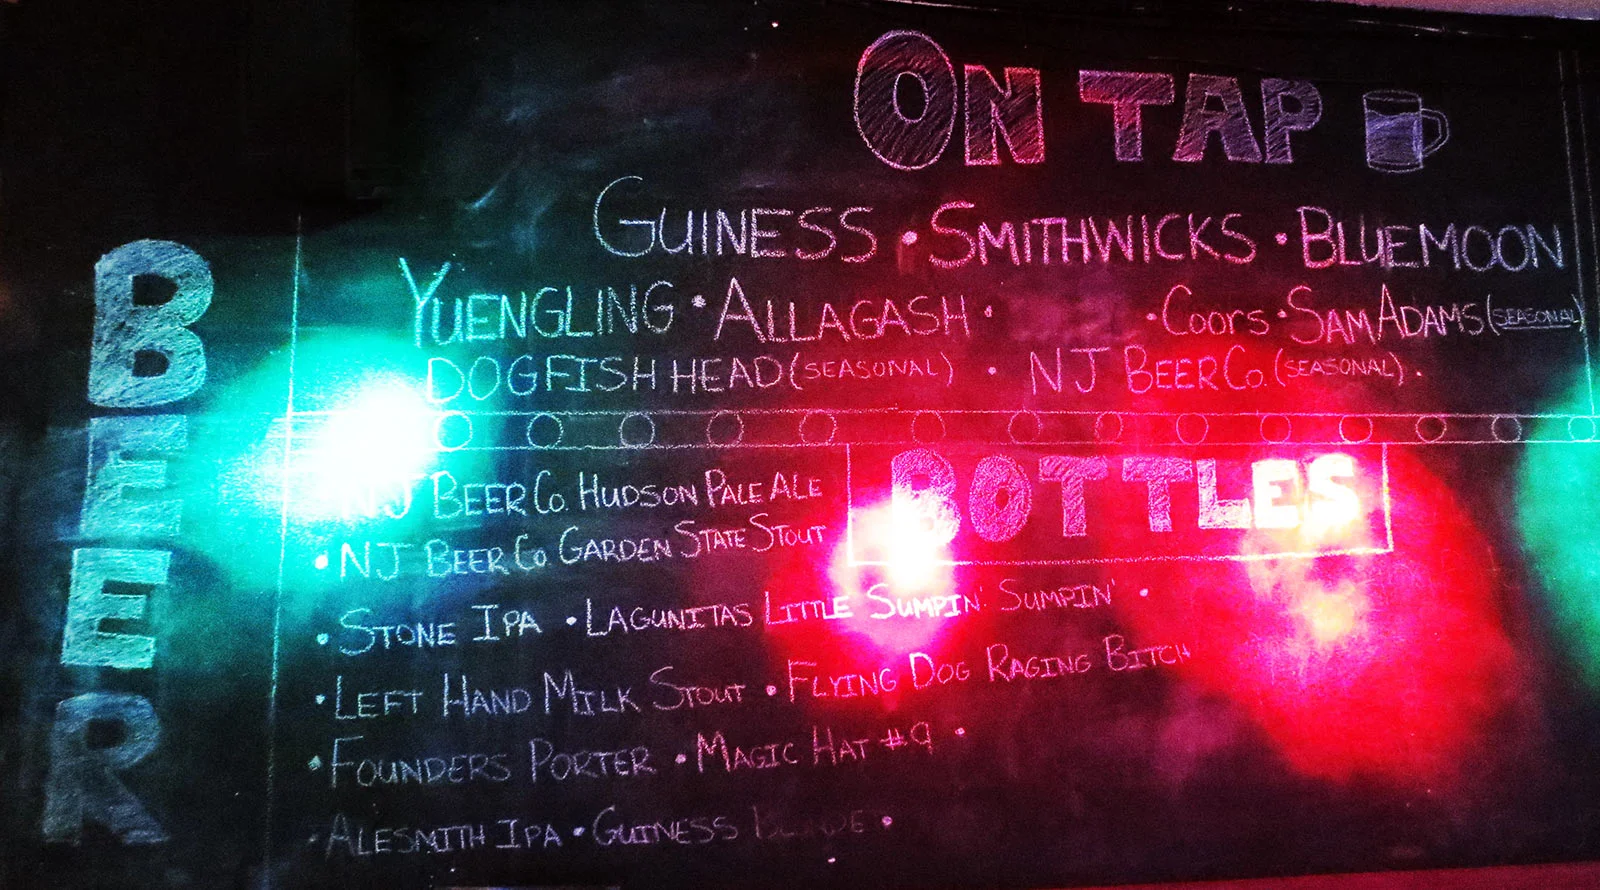 ON TAP
GUINESS • SMITHWICKS • BLUEMOON
YUENGLING • ALLAGASH • • COORS • SAM ADAMS (SEASONAL)
DOGFISH HEAD (SEASONAL) • NJ BEER CO. (SEASONAL) •
BEER
BOTTLES
NJ BEER CO. HUDSON PALE ALE
• NJ BEER CO. GARDEN STATE STOUT
• STONE IPA • LAGUNITAS LITTLE SUMPIN' SUMPIN' •
• LEFT HAND MILK STOUT • FLYING DOG RAGING BITCH
• FOUNDERS PORTER • MAGIC HAT #9 •
• ALESMITH IPA • GUINESS BLONDE •